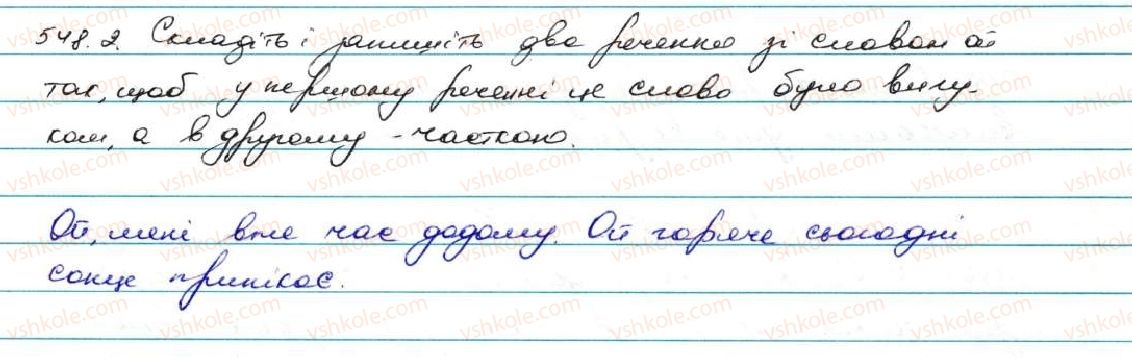 548.2. Складіть і запишіть два речення зі словом ой
так, щоб у першому реченні це слово було вигу-
ком, а в другому - часткою.
Ой, мені вже час додому. Ой гаряче сьогодні
сонце припікає.